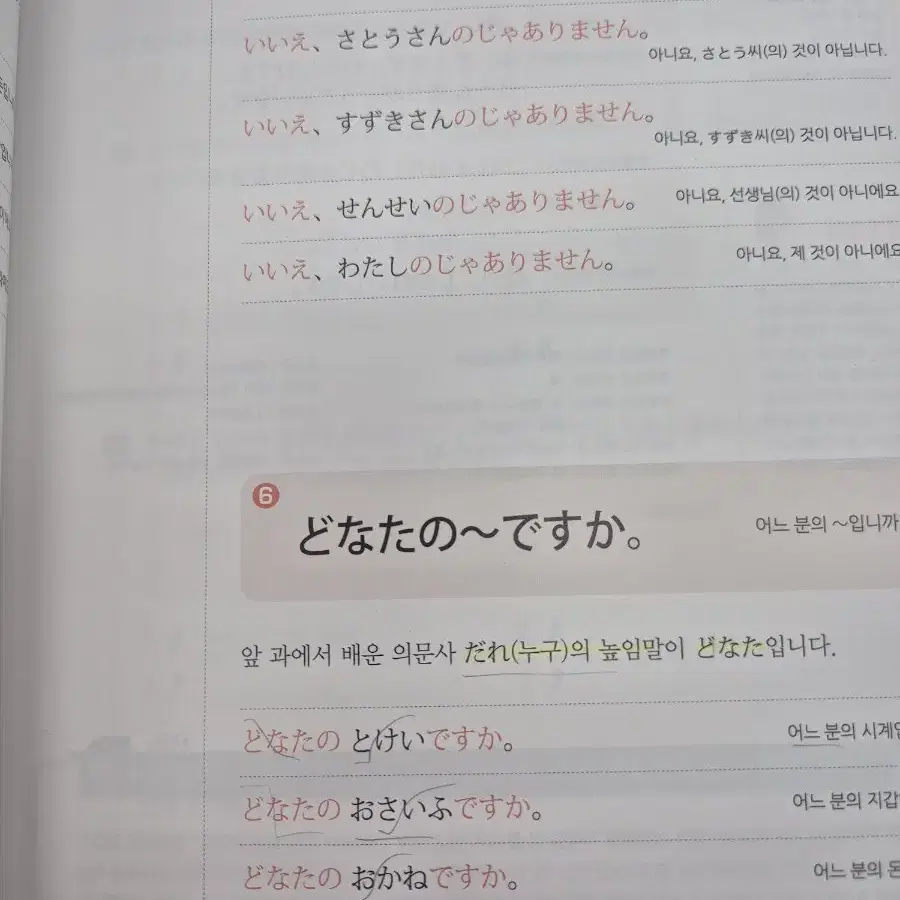 いいえ、さとうさんのじゃありません。
아니요, さとう씨(의) 것이 아닙니다.
いいえ、すずきさんのじゃありません。
아니요, すずき씨(의) 것이 아닙니다.
いいえ、せんせいのじゃありません。 아니요, 선생님(의) 것이 아니에요
いいえ、わたしのじゃありません。 아니요, 제 것이 아니에요
6
どなたの～ですか。 어느 분의 ～입니까
앞 과에서 배운 의문사 だれ(누구)의 높임말이 どなた입니다.
どなたの とけいですか。 어느 분의 시계
どなたの おさいふですか。 어느 분의 지갑
どなたの おかねですか。 어느 분의 돈